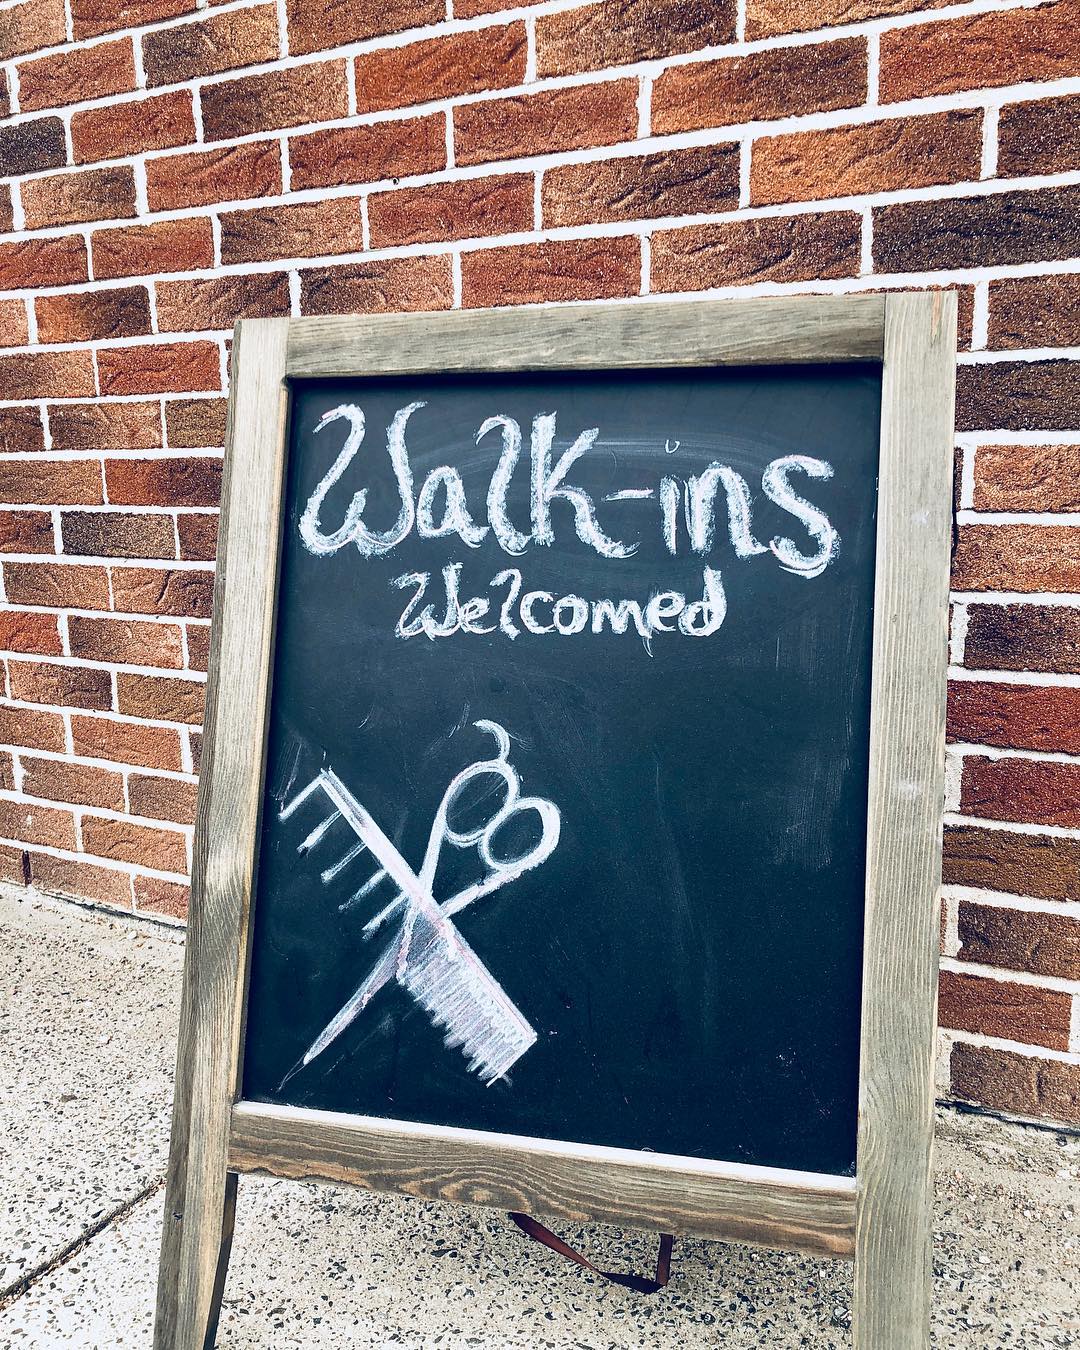 Walk-ins
Welcomed